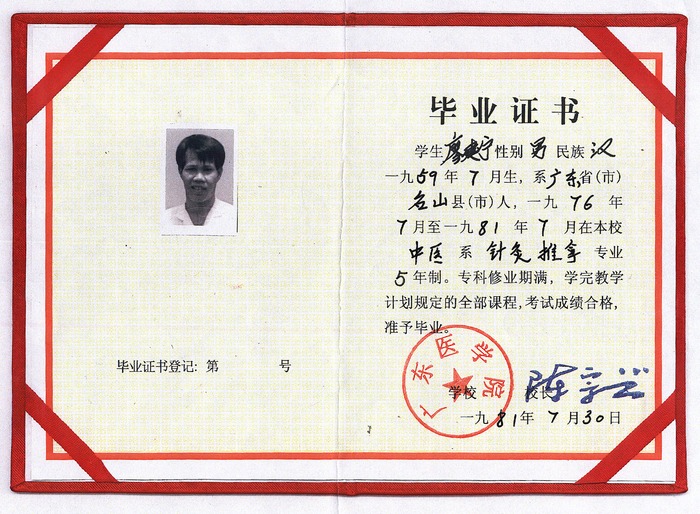 毕业证书
学生廖建宁性别 男 民族 汉
一九59年 7 月生，系广东省(市)
台山县(市)人，一九 76 年
7月至一九81 年 7 月在本校
中医 系 针灸推拿 专业
5 年制。专科修业期满，学完教学
计划规定的全部课程，考试成绩合格，
准予毕业。
广东医学院
学校 校长
一九81年 7 月30日
毕业证书登记：第 号